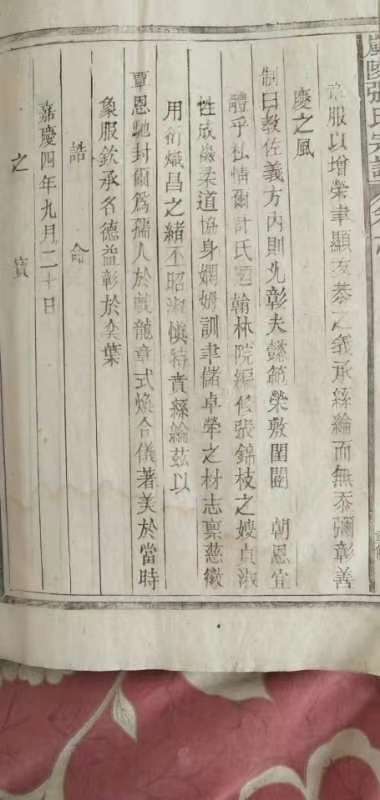 章服以增榮聿顯友恭之義承絲綸而無忝彌彰善
慶之風
制曰教佐義方內則允彰夫懿範榮敷閨閫 朝恩宜
體乎私情爾許氏迺翰林院編修張錦枝之嫂貞淑
性成徽柔道協身嫻姆訓聿儲卓犖之材志稟慈徽
用衍熾昌之緒丕昭淑慎特賁絲綸茲以
覃恩馳封爾為孺人於戲龍章式煥合儀著美於當時
象服欽承名德益彰於奕葉
誥命
嘉慶四年九月二十日
之寶
張氏宗譜